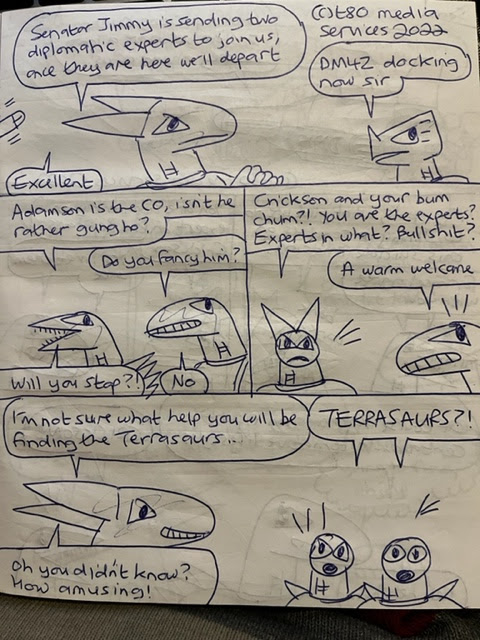 Senator Jimmy is sending two
diplomatic experts to join us,
once they are here we'll depart
(C)t80 media
services 2022
DM4Z docking
now sir
Excellent
Adamson is the CO, isn't he
rather gung ho?
Do you fancy him?
Will you stop?!
No
Crickson and your bum
chum?! You are the experts?
Experts in what? Bullshit?
A warm welcome
I'm not sure what help you will be
finding the Terrasaurs...
TERRASAURS?!
Oh you didn't know?
How amusing!